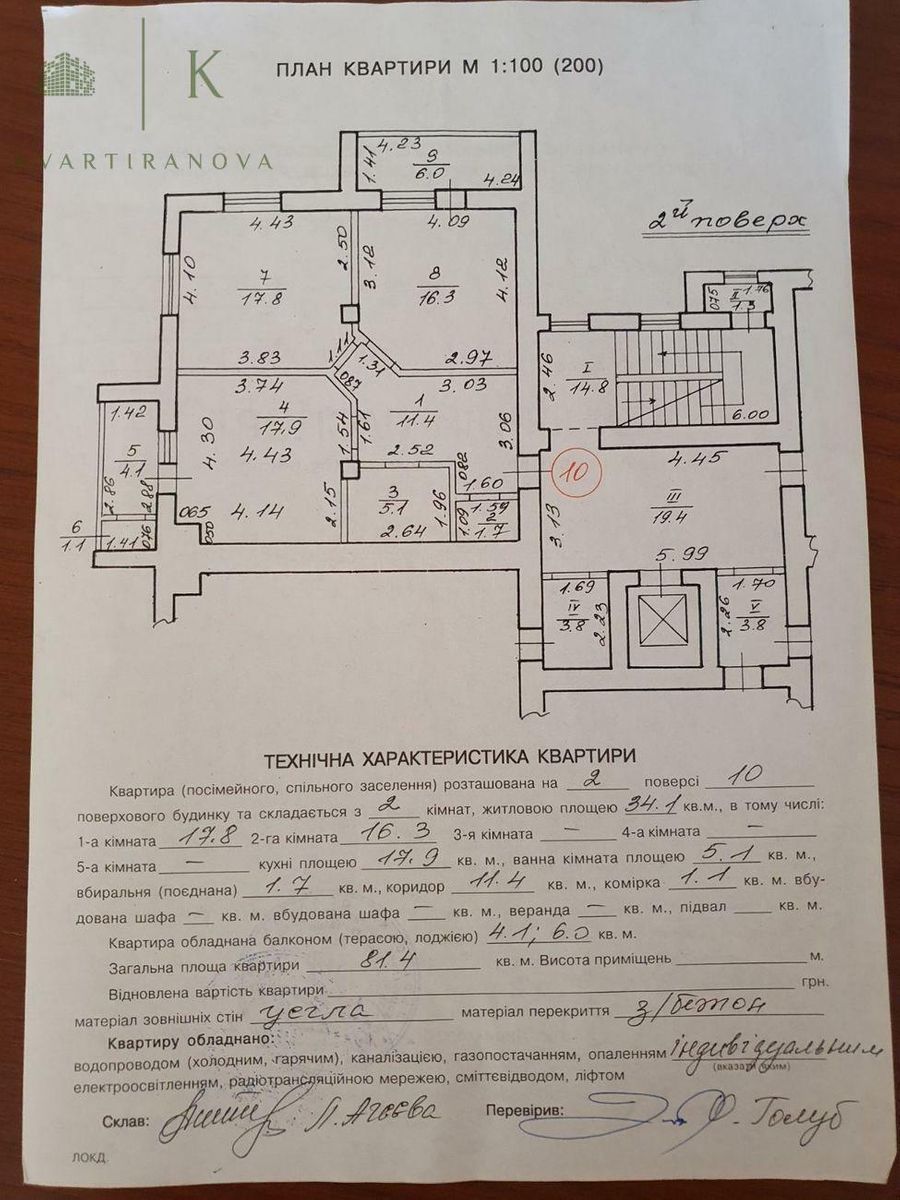 K
VARTIRANOVA
ПЛАН КВАРТИРИ М 1:100 (200)
2й поверх
4.23
1.41
9
6.0
4.24
4.43
2.50
4.09
4.10
7
17.8
3.12
8
16.3
4.12
3.83
1.11
1.31
2.97
087
075
II
1.76
1.3
2.46
I
14.8
6.00
3.74
3.03
1.42
4
17.9
1
11.4
4.30
4.43
1.54
1.61
3.06
5
4.1
2.52
082
10
4.45
2.86
2.88
1.60
065
4.14
2.15
3
5.1
1.96
1.59
2
1.7
1.09
3.13
III
19.4
6
1.1
1.41
076
050
2.64
5.99
1.69
IV
3.8
2.23
1.70
2.26
V
3.8
ТЕХНІЧНА ХАРАКТЕРИСТИКА КВАРТИРИ
Квартира (посімейного, спільного заселення) розташована на 2 поверсі 10
поверхового будинку та складається з 2 кімнат, житловою площею 34.1 кв.м., в тому числі:
1-а кімната 17.8 2-га кімната 16.3 3-я кімната – 4-а кімната –
5-а кімната – кухні площею 17.9 кв. м., ванна кімната площею 5.1 кв. м.,
вбиральня (поєднана) 1.7 кв. м., коридор 11.4 кв. м., комірка 1.1 кв. м вбу-
дована шафа – кв. м. вбудована шафа – кв. м., веранда – кв. м., підвал кв. м.
Квартира обладнана балконом (терасою, лоджією) 4.1; 6.0 кв. м.
Загальна площа квартири 81.4 кв. м. Висота приміщень м.
Відновлена вартість квартири грн.
матеріал зовнішніх стін цегла матеріал перекриття з/бетон
Квартиру обладнано:
водопроводом (холодним, гарячим), каналізацією, газопостачанням, опаленням індивідуальним
(вказати яким)
електроосвітленням, радіотрансляційною мережею, сміттєвідводом, ліфтом
Склав: Л. Агєєва Перевірив: О. Голуб
ЛОКД.